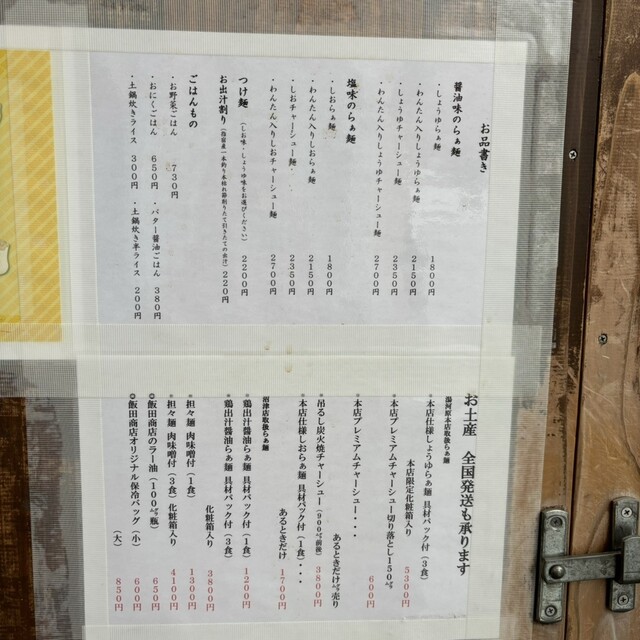 お品書き
醤油味のらぁ麺
・しょうゆらぁ麺 1800円
・わんたん入りしょうゆらぁ麺 2150円
・しょうゆチャーシュー麺 2350円
・わんたん入りしょうゆチャーシュー麺 2700円
塩味のらぁ麺
・しおらぁ麺 1800円
・わんたん入りしおらぁ麺 2150円
・しおチャーシュー麺 2350円
・わんたん入りしおチャーシュー麺 2700円
つけ麺(しお味・しょうゆ味をお選びください) 2200円
お出汁割り 220円
ごはんもの
・お野菜ごはん 730円
・おにくごはん 650円 ・バター醤油ごはん 380円
・土鍋炊きライス 300円 ・土鍋炊き半ライス 200円
お土産 全国発送も承ります
湯河原本店取扱らぁ麺
*本店仕様しょうゆらぁ麺 具材パック付(3食)
本店限定化粧箱入り 5300円
*本店プレミアムチャーシュー切り落とし150㌘ 600円
*本店プレミアムチャーシュー・・・
あるときだけ㌘売り
*吊るし炭火焼チャーシュー(900㌘前後) 3800円
*本店仕様しおらぁ麺 具材パック付(1食)・・・
あるときだけ 1700円
沼津店取扱らぁ麺
*鶏出汁醤油らぁ麺 具材パック付(1食) 1200円
*鶏出汁醤油らぁ麺 具材パック付(3食)
化粧箱入り 3800円
*担々麺 肉味噌付(1食) 1300円
*担々麺 肉味噌付(3食)化粧箱入り 4100円
◎飯田商店のラー油(100㌘瓶) 650円
◎飯田商店オリジナル保冷バッグ(小) 600円
(大) 850円